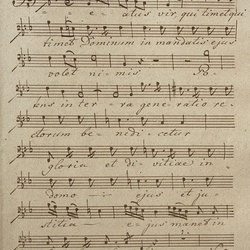 - e - atus vir qui timet qui
timet Dominum in mandatis ejus
volet nimis. Po -
tens in terra generatio re -
ctorum be - nedi - cetur
gloria et di - vitiae in
Domo - ejus et ju -
stitia - ejus manet in